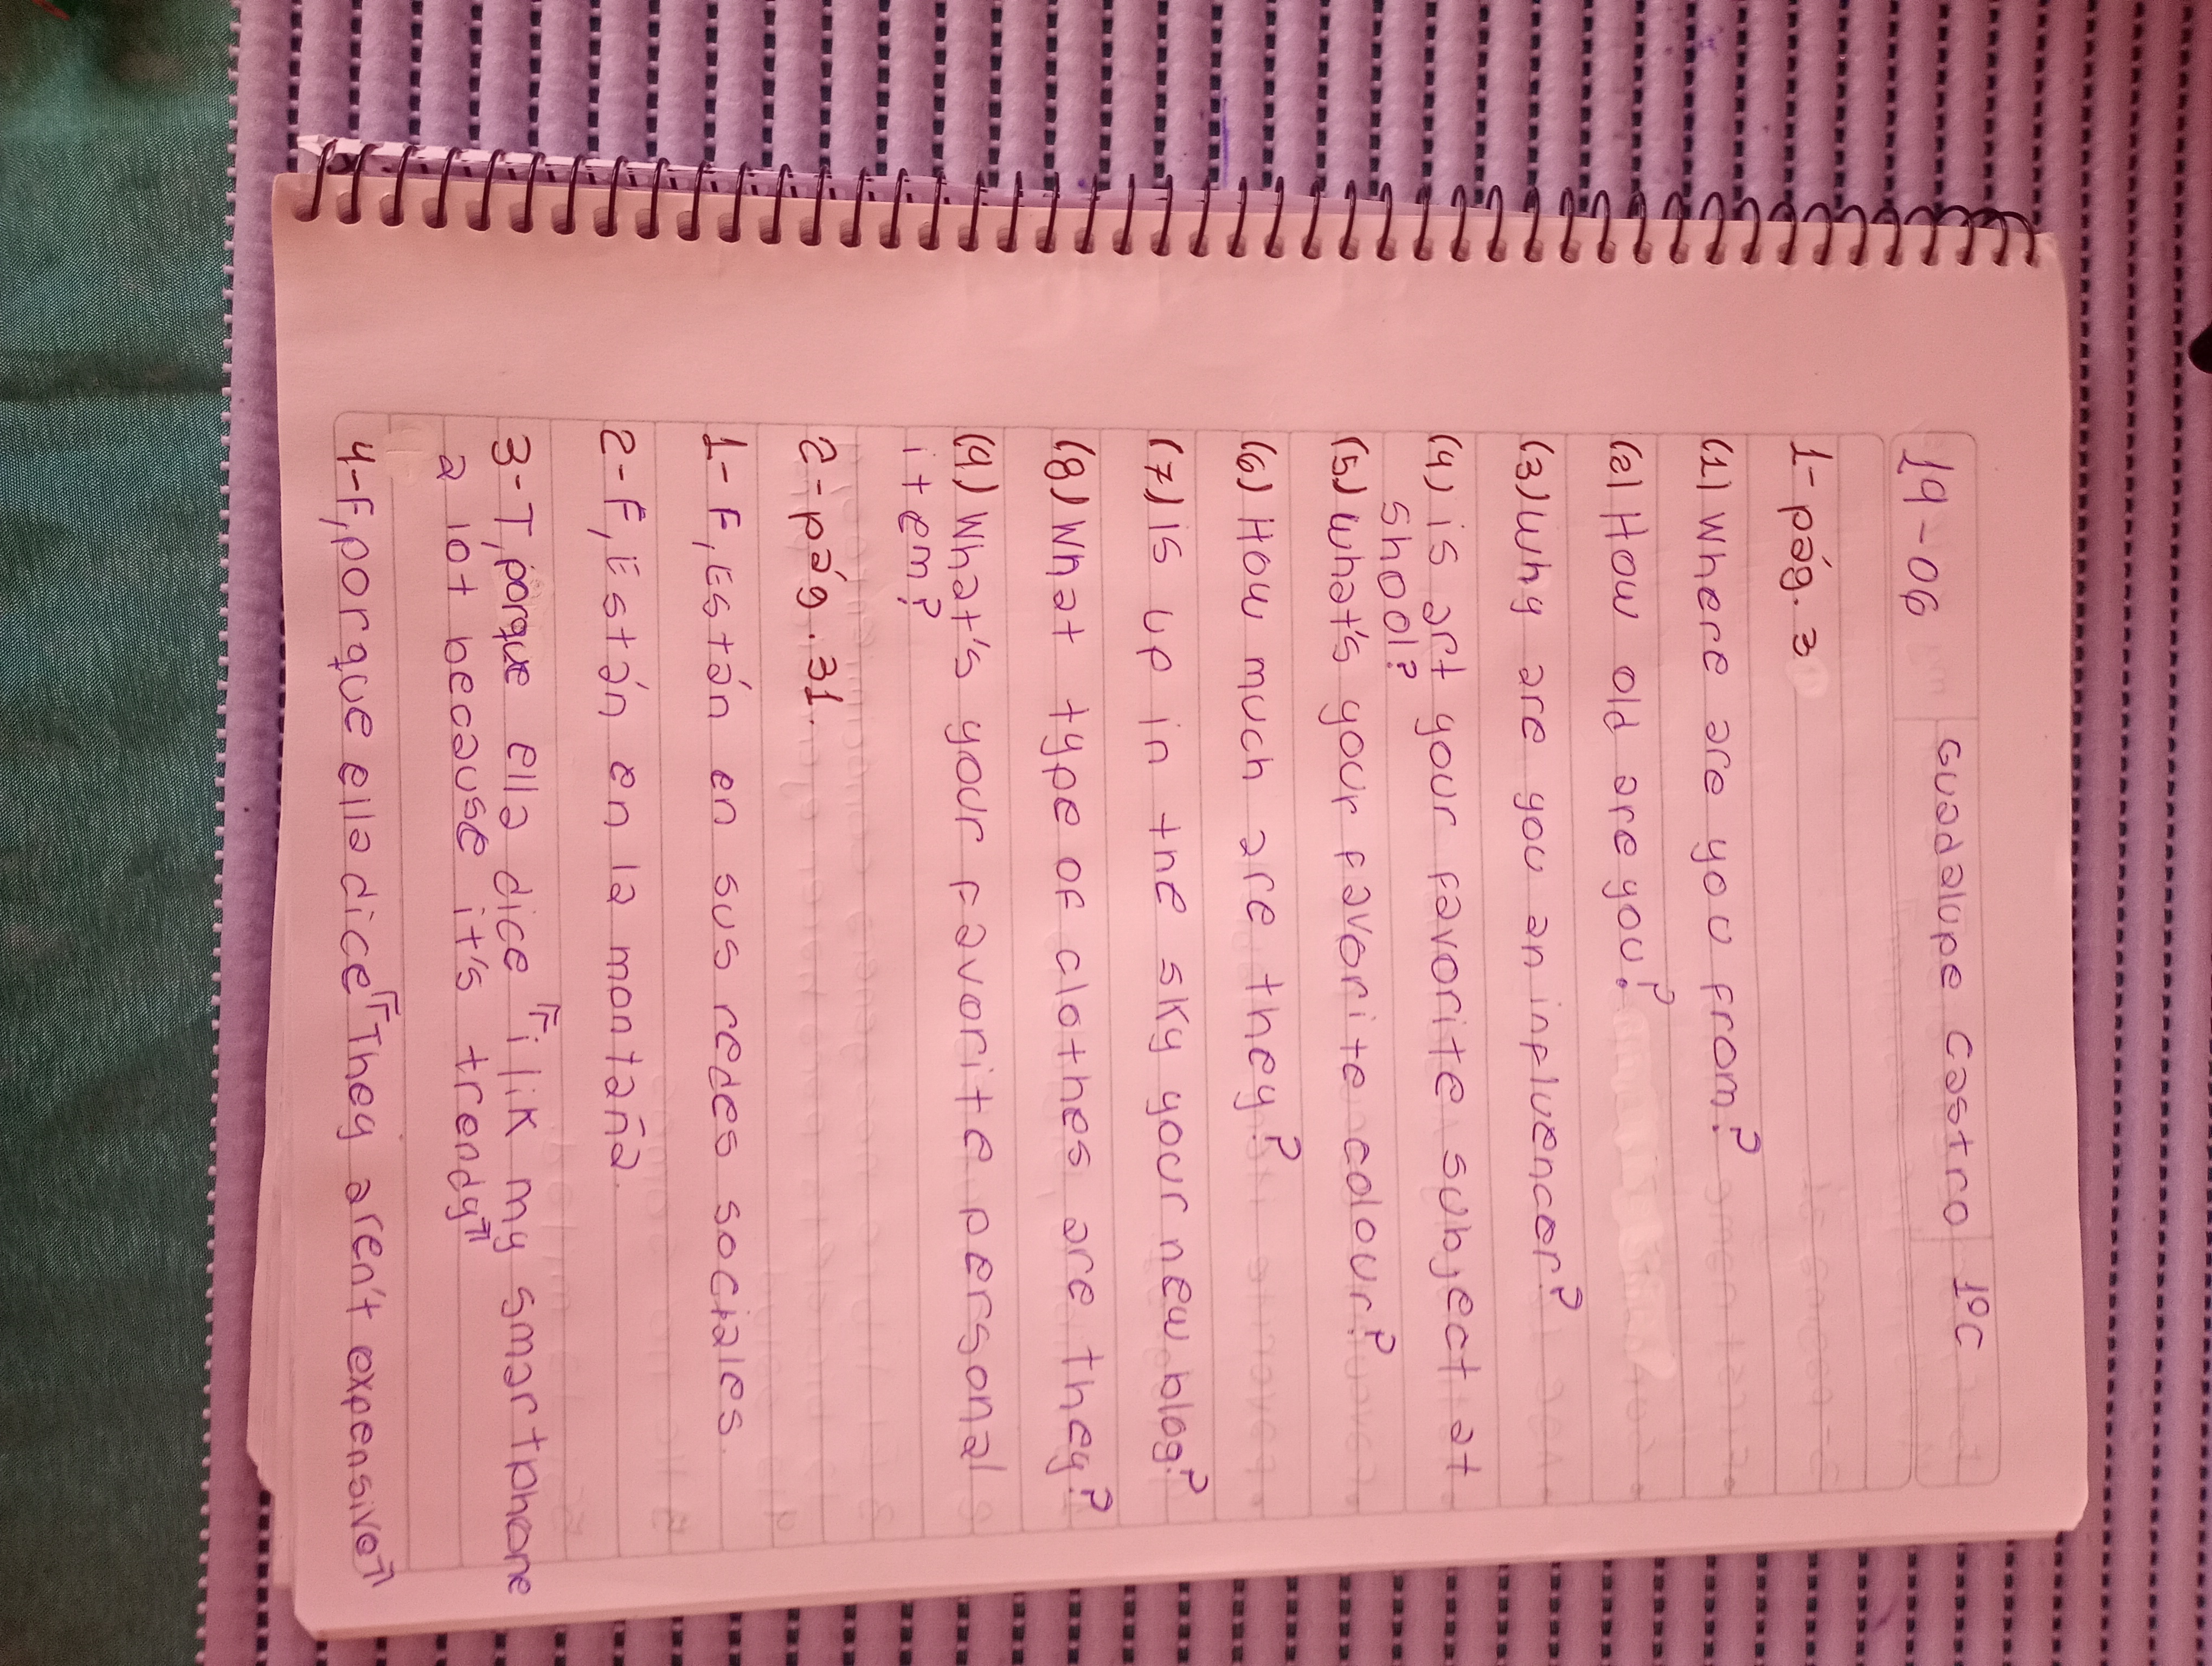 19-06 Guadalupe Castro 1ºC
1-pág. 3
(1) Where are you from?
(2) How old are you?
(3) Why are you an influencer?
(4) is art your favorite subject at
shool?
(5) what's your favorite colour?
(6) How much are they?
(7) is up in the sky your new blog?
(8) What type of clothes are they?
(9) What's your favorite personal
item?
2-pág. 31.
1-F, Están en sus redes sociales.
2-F, Están en la montaña.
3-T, porque ella dice "i lik my smartphone
a lot because it's trendy"
4-F, porque ella dice "They aren't expensive"